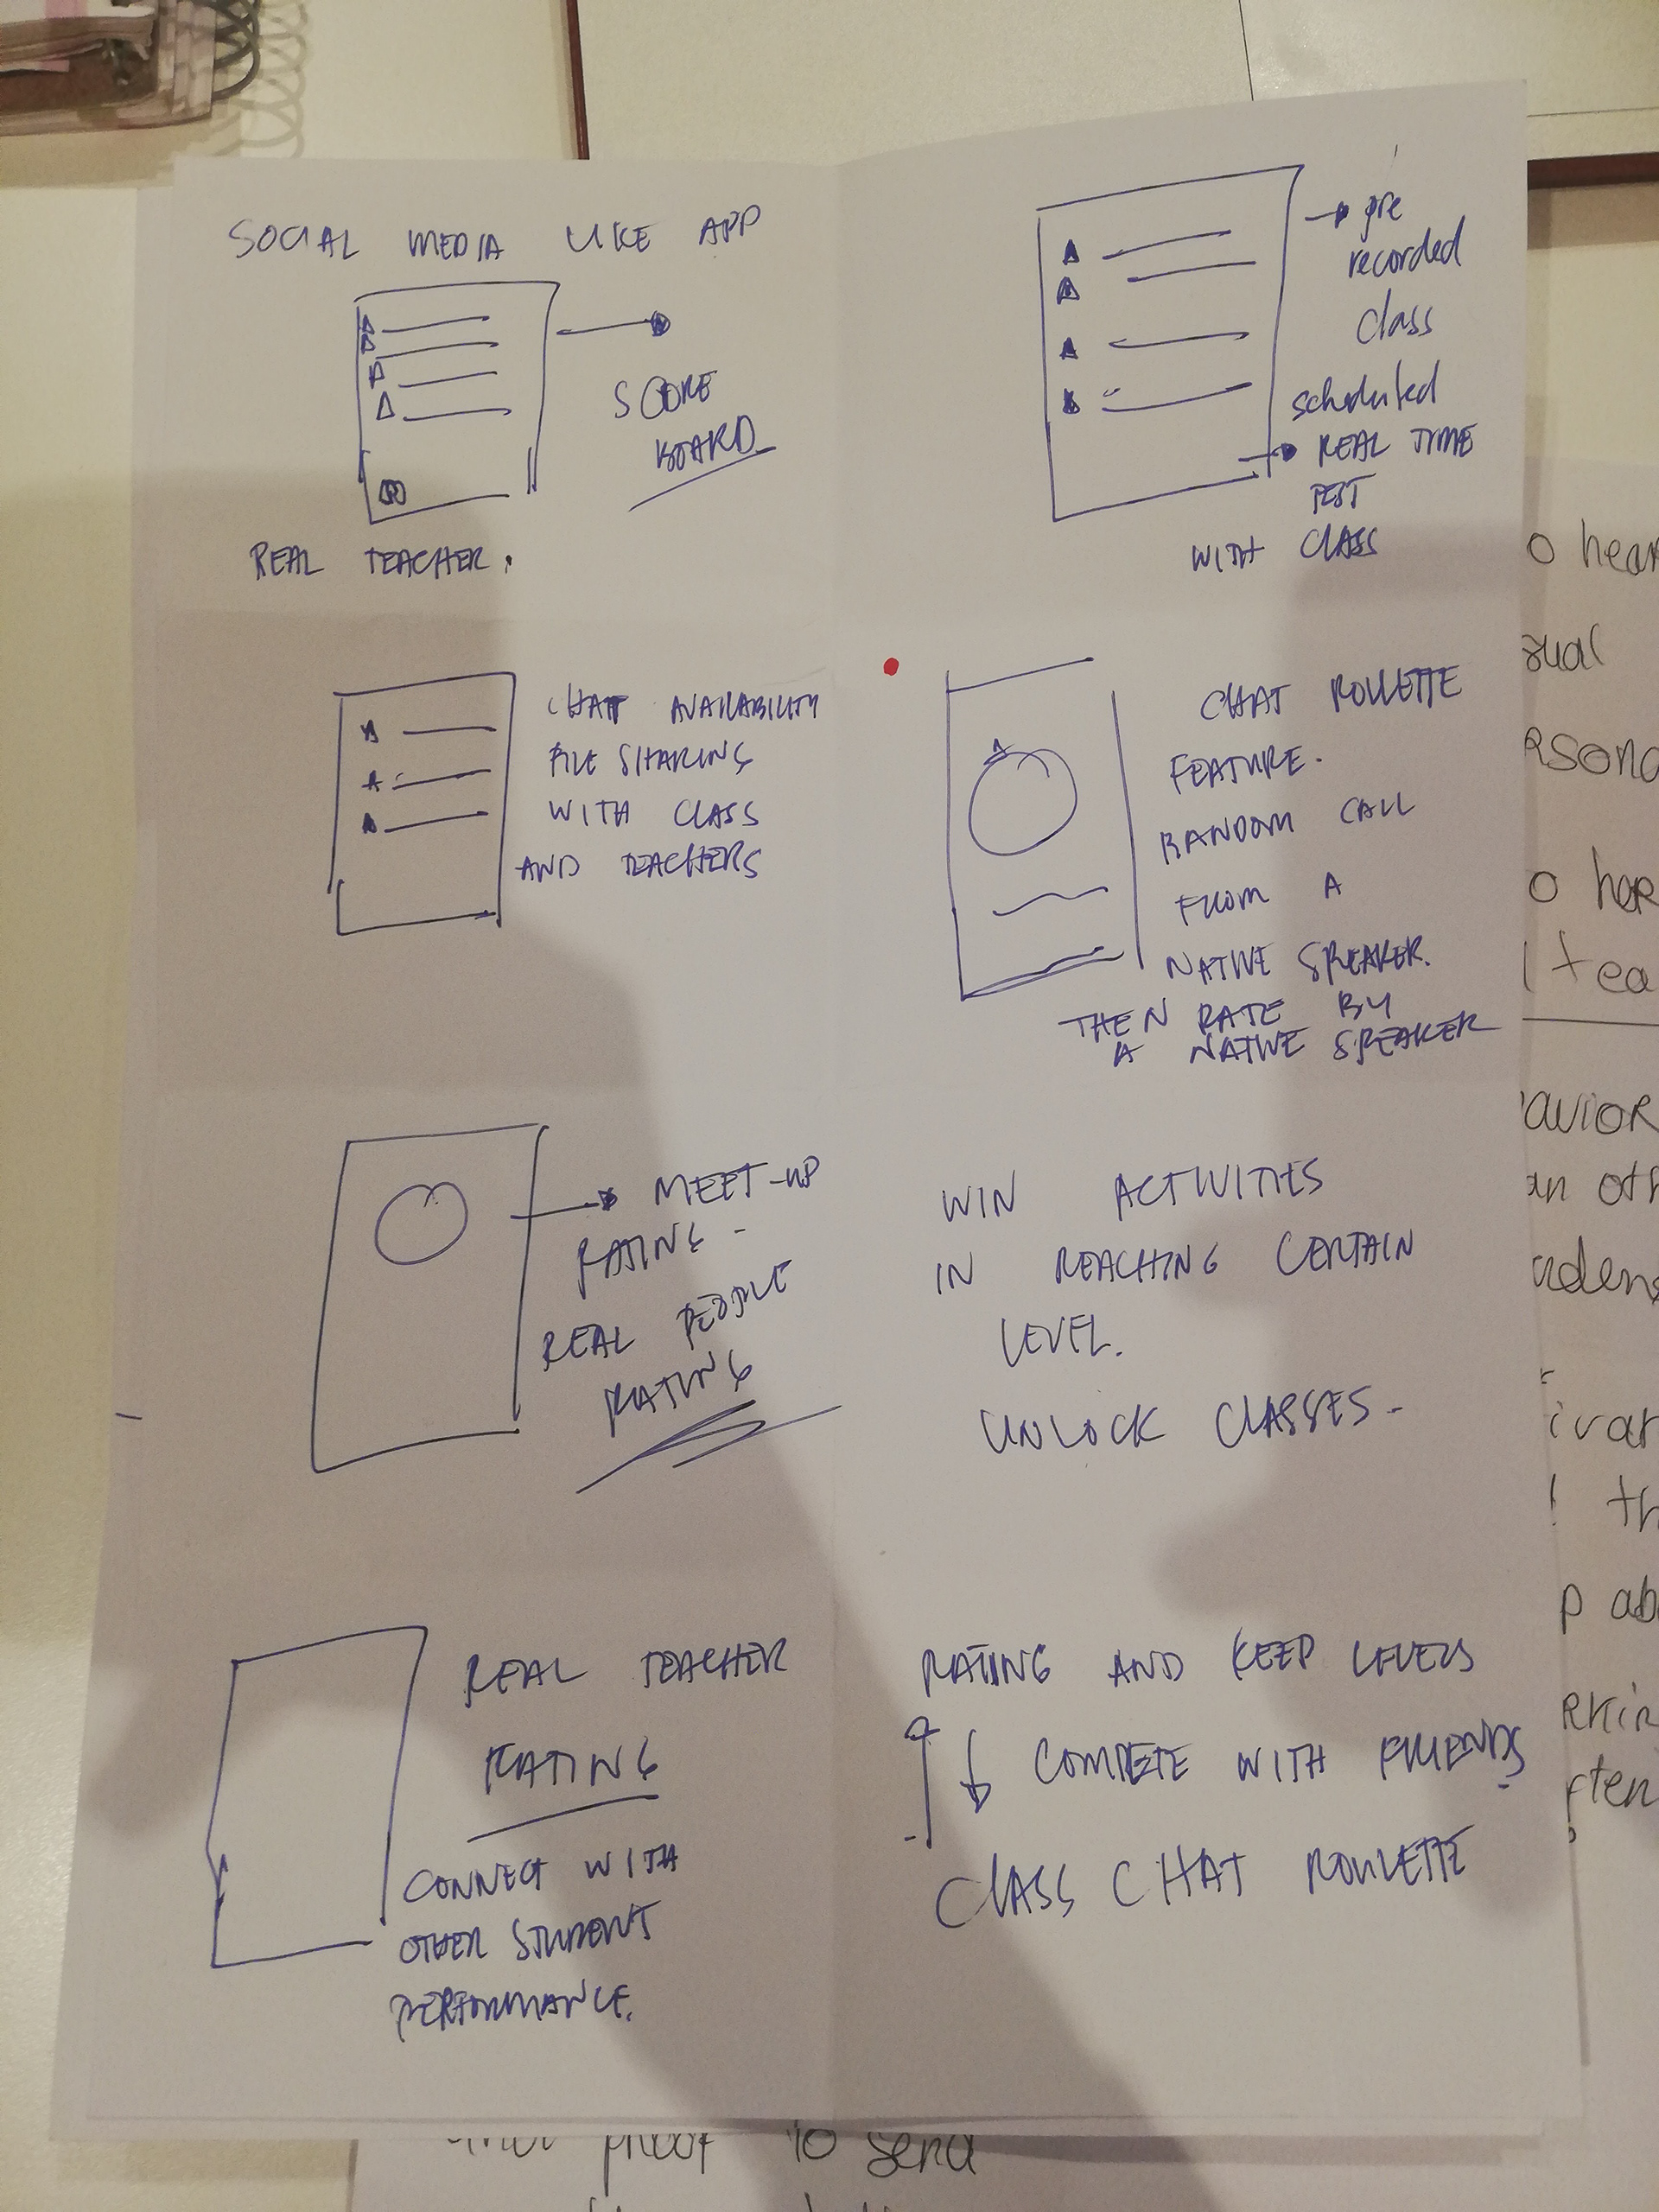 SOCIAL MEDIA LIKE APP
SCORE
BOARD
REAL TEACHER.
pre
recorded
class
scheduled
REAL TIME
TEST
WITH CLASS
CHAT AVAILABILITY
FILE SHARING
WITH CLASS
AND TEACHERS
CHAT ROULETTE
FEATURE.
RANDOM CALL
FROM A
NATIVE SPEAKER.
THEN RATE BY
A NATIVE SPEAKER
MEET-UP
RATING -
REAL PEOPLE
RATING
WIN ACTIVITIES
IN REACHING CERTAIN
LEVEL.
UNLOCK CLASSES -
REAL TEACHER
RATING
CONNECT WITH
OTHER STUDENT
PERFORMANCE.
RATING AND KEEP LEVELS
COMPETE WITH FRIENDS
CLASS CHAT ROULETTE
proof to send